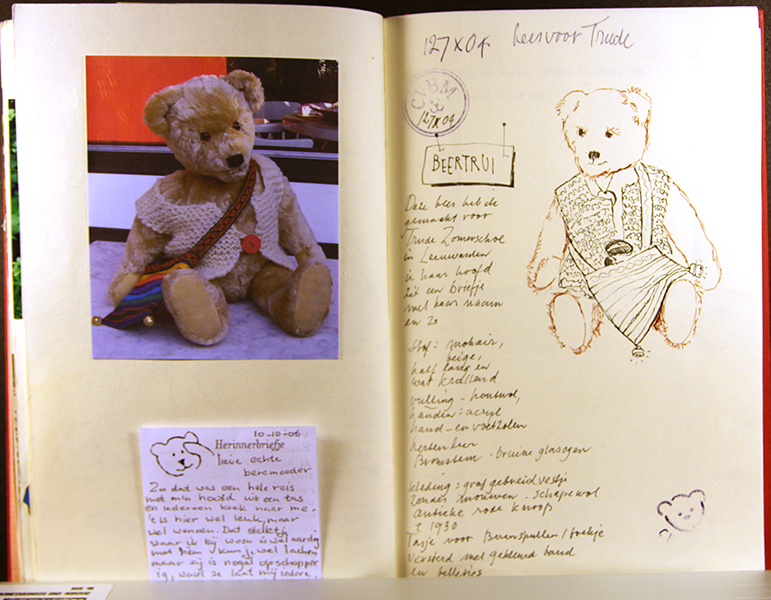 10-10-06
Herinnerbriefje
lieve echte
beremoeder
Zo dat was een hele reis
met m'n hoofd uit een tas
en iedereen keek naar me.
't is hier wel leuk, maar
wel wennen. Dat stelletje
waar ik bij woon is wel aardig
met hem kun je wel lachen
maar zij is nogal opschepper
ig, want ze laat mij iedere
127x04 Lees voor Trude
CVBM
127x04
BEERTRUI
Deze beer heb ik
gemaakt voor
Trude Zomerschoe
in Leeuwarden
in haar hoofd
zit een briefje
met haar naam
en 20
Stof: mohair,
beige,
half lang en
wat krullend
vulling - houtwol,
handen: acryl
hand- en voetzolen
hertenleer
Bromstem - bruine glasogen
kleding: grof gebreid vestje
zonder mouwen - schapewol
antieke rode knoop
± 1930
Tasje voor Berenspullen / boekje
versierd met gekleurd band
en belletjes